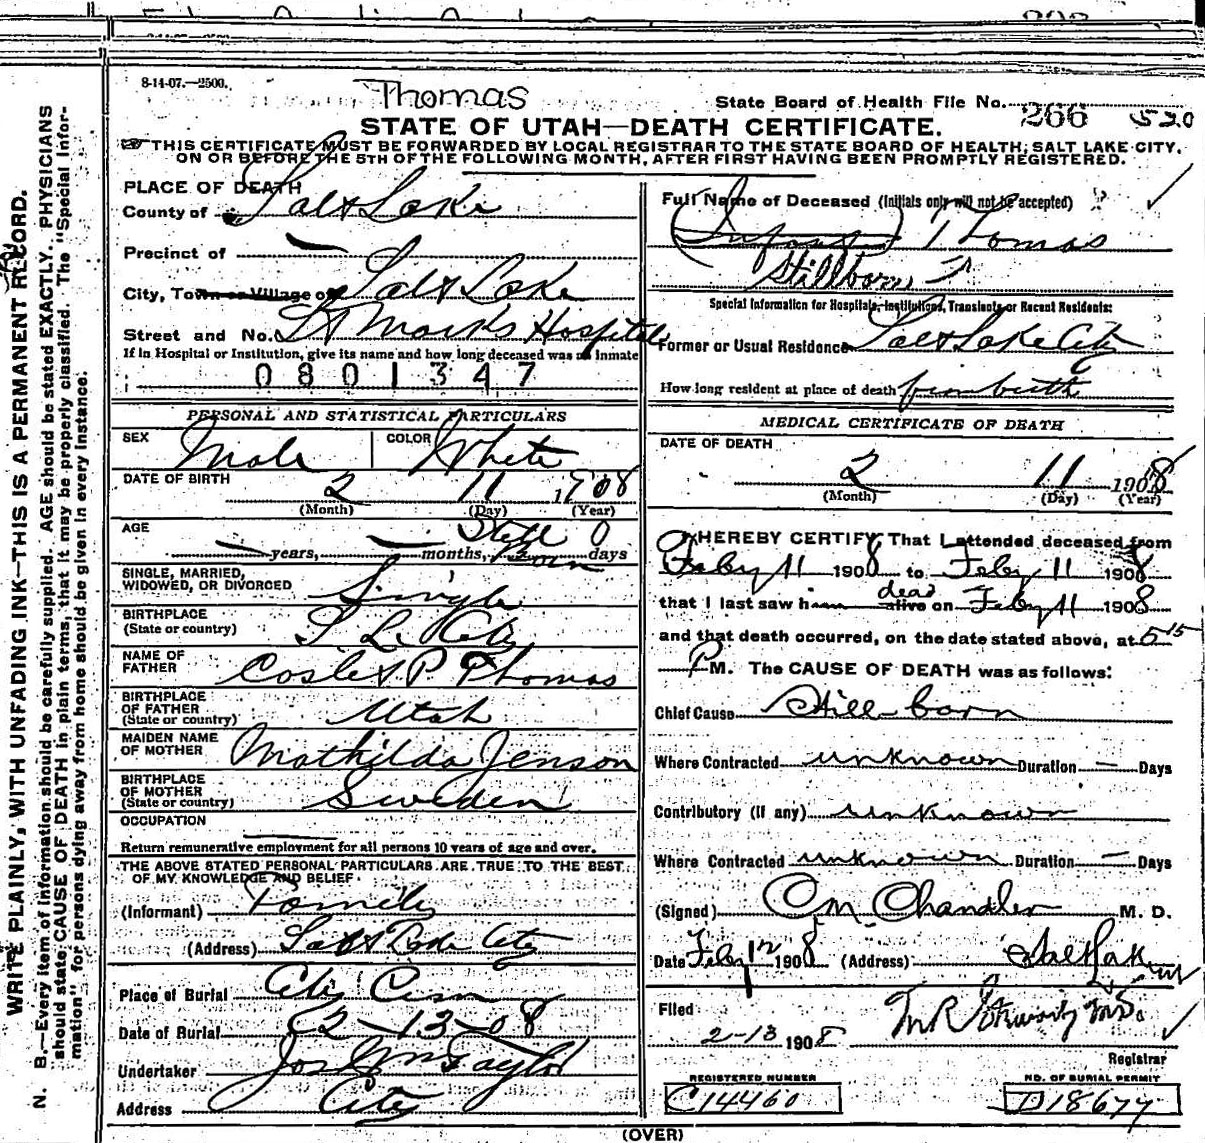 8-14-07.—2500.
Thomas
State Board of Health File No. 266 520
STATE OF UTAH—DEATH CERTIFICATE.
THIS CERTIFICATE MUST BE FORWARDED BY LOCAL REGISTRAR TO THE STATE BOARD OF HEALTH, SALT LAKE CITY,
ON OR BEFORE THE 5TH OF THE FOLLOWING MONTH, AFTER FIRST HAVING BEEN PROMPTLY REGISTERED.
WRITE PLAINLY, WITH UNFADING INK—THIS IS A PERMANENT RECORD.
N. B.—Every item of information should be carefully supplied. AGE should be stated EXACTLY. PHYSICIANS
should state CAUSE OF DEATH in plain terms, that it may be properly classified. The "Special Infor-
mation" for persons dying away from home should be given in every instance.
PLACE OF DEATH
County of Salt Lake
Precinct of —
City, Town or Village of Salt Lake
Street and No. St Marks Hospital
If in Hospital or Institution, give its name and how long deceased was an inmate
0801347
PERSONAL AND STATISTICAL PARTICULARS
SEX Male COLOR White
DATE OF BIRTH
2 11 1908
(Month) (Day) (Year)
AGE Still 0
— years, — months, Born days
SINGLE, MARRIED,
WIDOWED, OR DIVORCED Single
BIRTHPLACE
(State or country) S. L. City
NAME OF
FATHER P. Thomas
BIRTHPLACE
OF FATHER
(State or country) Utah
MAIDEN NAME
OF MOTHER Mathilda Jenson
BIRTHPLACE
OF MOTHER
(State or country) Sweden
OCCUPATION
Return remunerative employment for all persons 10 years of age and over.
THE ABOVE STATED PERSONAL PARTICULARS ARE TRUE TO THE BEST
OF MY KNOWLEDGE AND BELIEF
(Informant) Family
(Address) Salt Lake City
Place of Burial City Cem
Date of Burial 2-13-08
Undertaker Jos Wm Taylor
Address City
Full Name of Deceased (Initials only will not be accepted)
(Infant) Thomas
Stillborn
Special Information for Hospitals, Institutions, Transients or Recent Residents:
Former or Usual Residence Salt Lake City
How long resident at place of death from birth
MEDICAL CERTIFICATE OF DEATH
DATE OF DEATH
2 11 1908
(Month) (Day) (Year)
I HEREBY CERTIFY, That I attended deceased from
Feby 11 1908 to Feby 11 1908
that I last saw him dead alive on Feby 11 1908
and that death occurred, on the date stated above, at 5 15
P M. The CAUSE OF DEATH was as follows:
Chief Cause Still-born
Where Contracted unknown Duration — Days
Contributory (if any) unknown
Where Contracted unknown Duration — Days
(Signed) C M Chandler M. D.
Date Feby 1908 (Address) Salt Lake
Filed
2-13 1908
Registrar
REGISTERED NUMBER
C14460
NO. OF BURIAL PERMIT
D18677
(OVER)